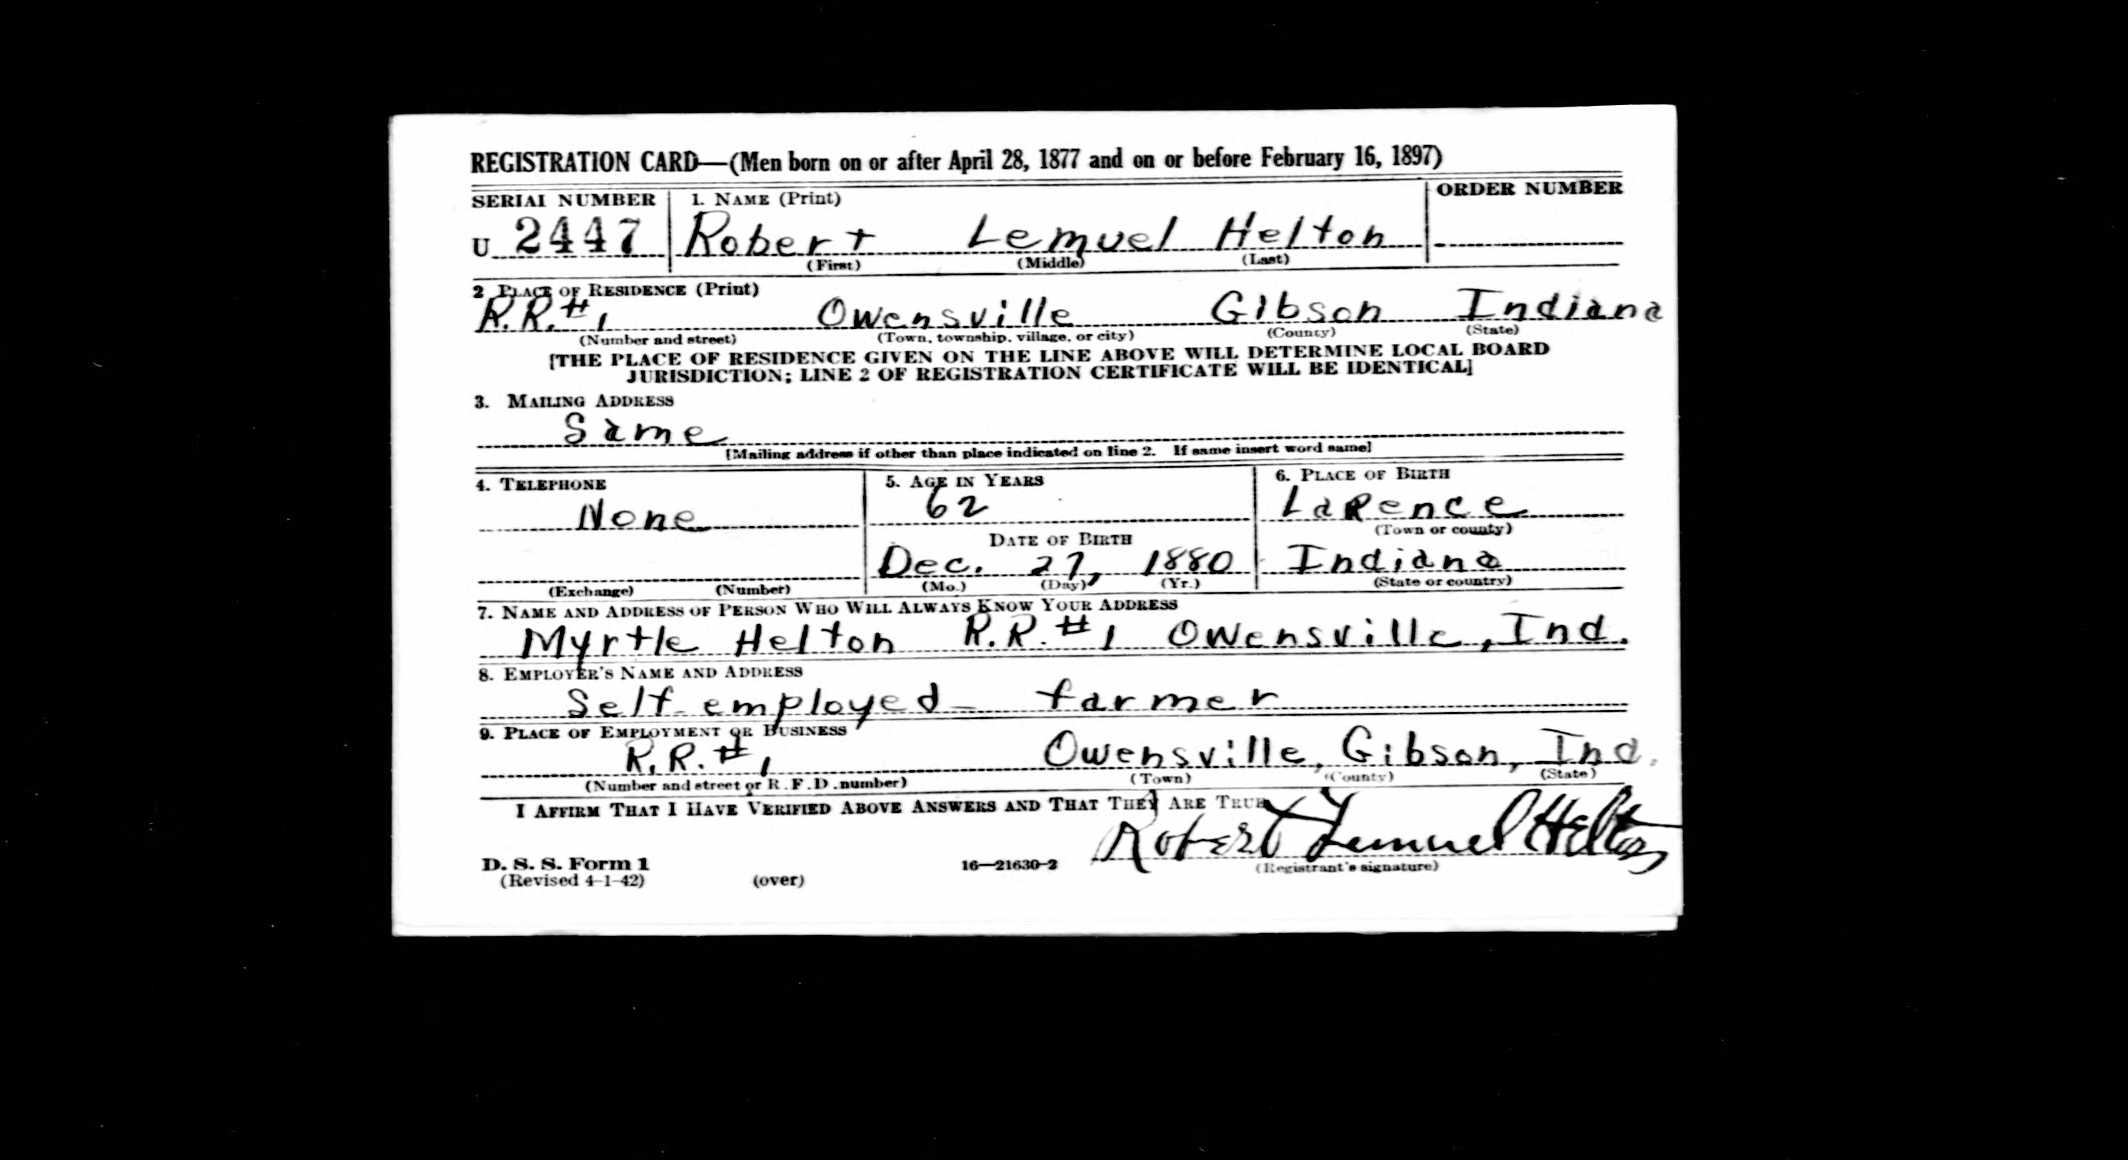 REGISTRATION CARD—(Men born on or after April 28, 1877 and on or before February 16, 1897)
SERIAL NUMBER 1. NAME (Print) ORDER NUMBER
U 2447 Robert Lemuel Helton
(First) (Middle) (Last)
2 PLACE OF RESIDENCE (Print)
R.R.#1 Owensville Gibson Indiana
(Number and street) (Town, township, village, or city) (County) (State)
[THE PLACE OF RESIDENCE GIVEN ON THE LINE ABOVE WILL DETERMINE LOCAL BOARD
JURISDICTION; LINE 2 OF REGISTRATION CERTIFICATE WILL BE IDENTICAL]
3. MAILING ADDRESS
Same
[Mailing address if other than place indicated on line 2. If same insert word same]
4. TELEPHONE 5. AGE IN YEARS 6. PLACE OF BIRTH
None 62 LaRence
(Town or county)
DATE OF BIRTH
Dec. 27, 1880 Indiana
(Exchange) (Number) (Mo.) (Day) (Yr.) (State or country)
7. NAME AND ADDRESS OF PERSON WHO WILL ALWAYS KNOW YOUR ADDRESS
Myrtle Helton R.R.#1 Owensville, Ind.
8. EMPLOYER'S NAME AND ADDRESS
Self employed - farmer
9. PLACE OF EMPLOYMENT OR BUSINESS
R.R.#1 Owensville, Gibson, Ind.
(Number and street or R.F.D. number) (Town) (County) (State)
I AFFIRM THAT I HAVE VERIFIED ABOVE ANSWERS AND THAT THEY ARE TRUE
Robert Lemuel Helton
D. S. S. Form 1 16—21630-2 (Registrant's signature)
(Revised 4-1-42) (over)